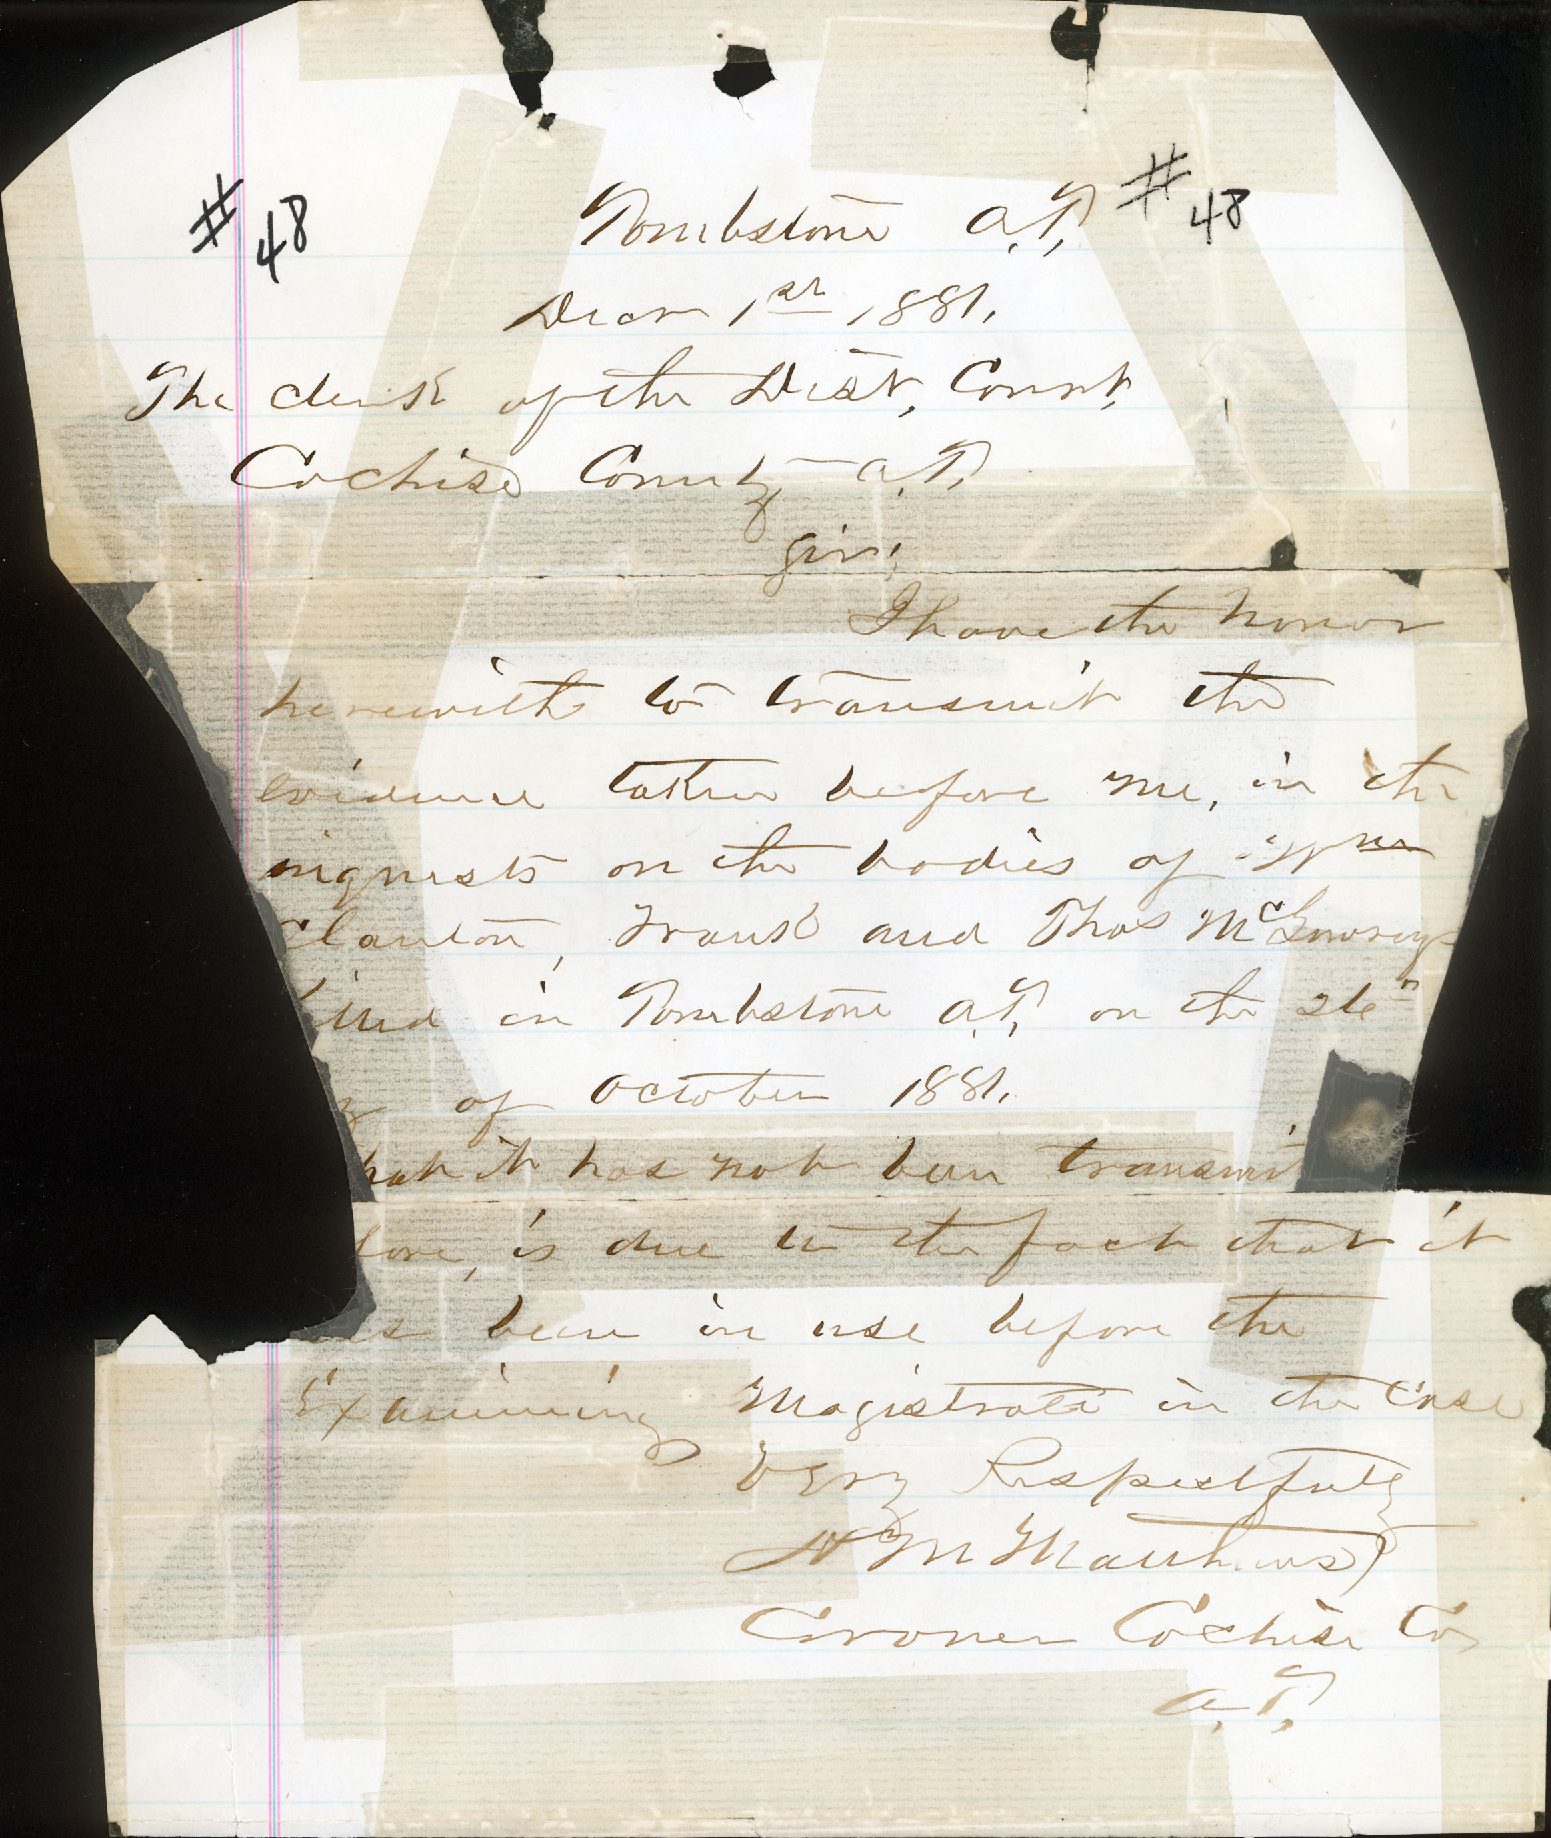 # 48 Tombstone A.T. # 48
Decm 1st 1881.
The clerk of the Dist, Court,
Cochise County A.T.
Sir;
I have the honor
herewith to transmit the
evidence taken before me, in the
inquests on the bodies of
Clanton, Frank and Thos McLowry
illed in Tombstone A.T. on the 26th
y of October 1881.
hat it has not been transmit
fore, is due to the fact that it
as been in use before the
Examining Magistrate in the case
Very Respectfully
H M Matthews
Coroner Cochise Co,
A.T.